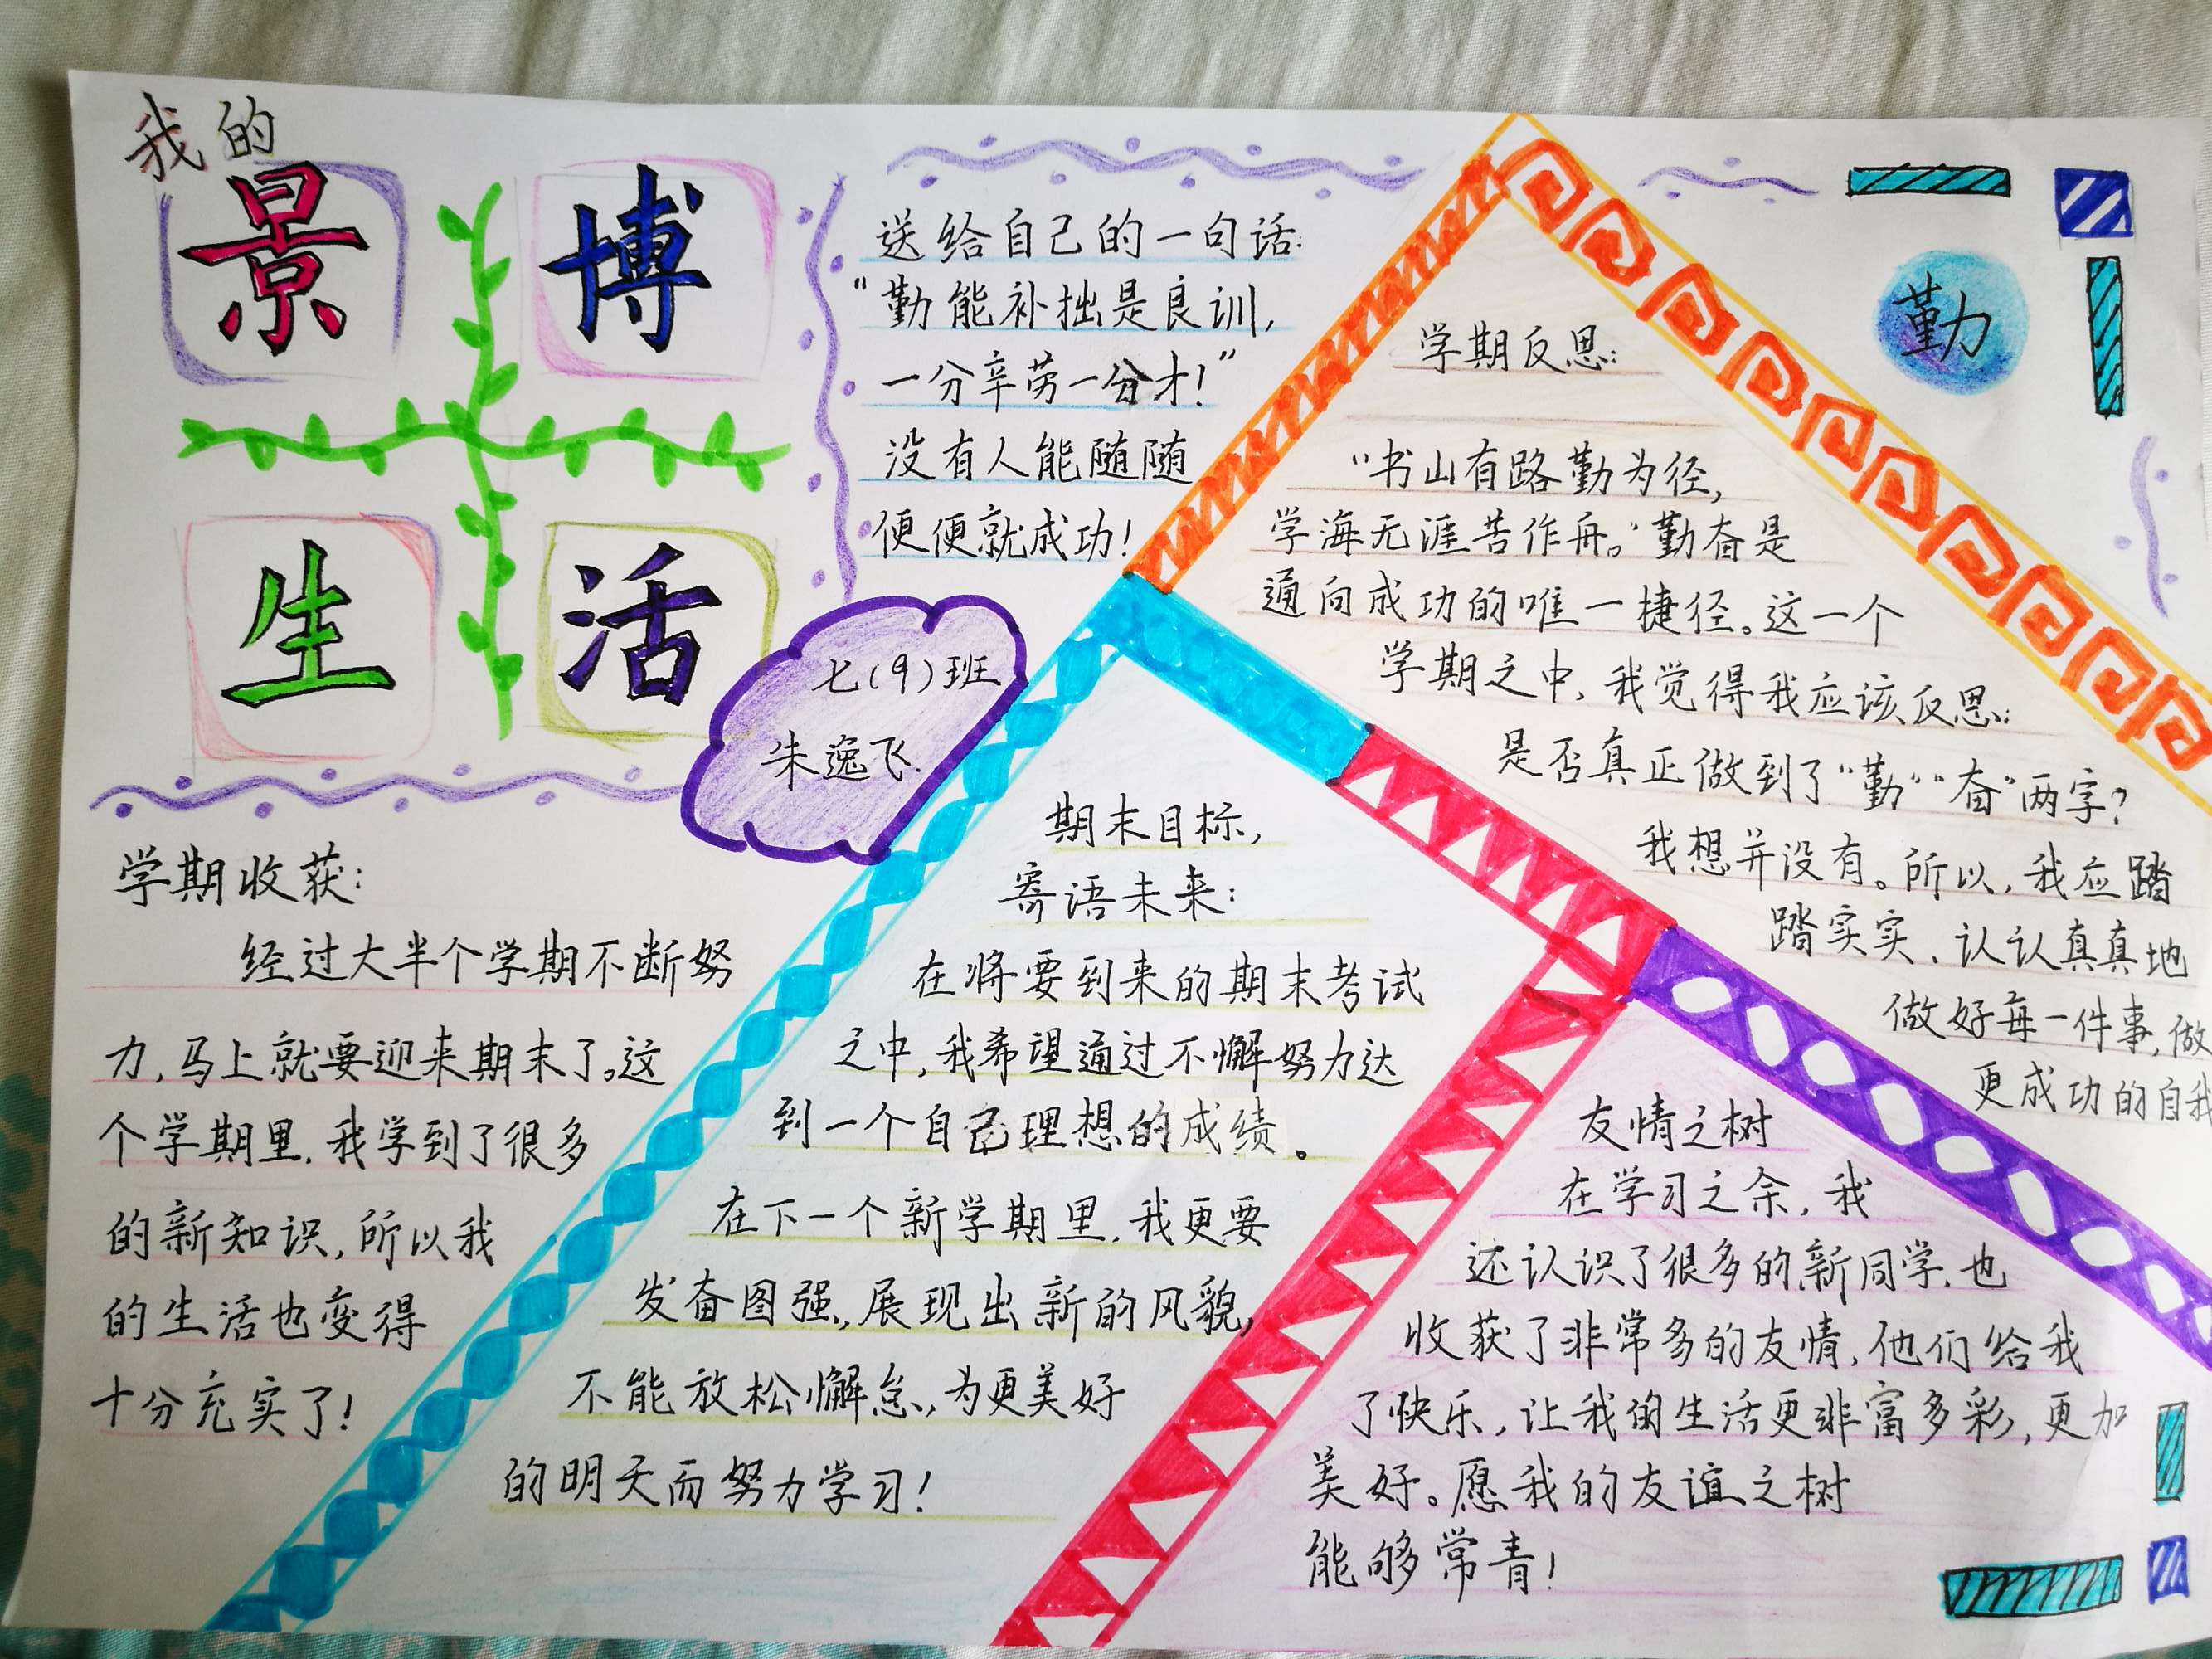 我的
景博
生活
送给自己的一句话：
“勤能补拙是良训，
一分辛劳一分才！”
没有人能随随
便便就成功！
七（9）班
朱逸飞
学期收获：
经过大半个学期不断努
力，马上就要迎来期末了。这
个学期里，我学到了很多
的新知识，所以我
的生活也变得
十分充实了！
期末目标，
寄语未来：
在将要到来的期末考试
之中，我希望通过不懈努力达
到一个自己理想的成绩。
在下一个新学期里，我更要
发奋图强，展现出新的风貌，
不能放松懈怠，为更美好
的明天而努力学习！
学期反思：
“书山有路勤为径，
学海无涯苦作舟。”勤奋是
通向成功的唯一捷径。这一个
学期之中，我觉得我应该反思：
是否真正做到了“勤”“奋”两字？
我想并没有。所以，我应踏
踏实实、认认真真地
做好每一件事，做
更成功的自我
勤
友情之树
在学习之余，我
还认识了很多的新同学，也
收获了非常多的友情，他们给我
了快乐，让我的生活更非富多彩，更加
美好。愿我的友谊之树
能够常青！